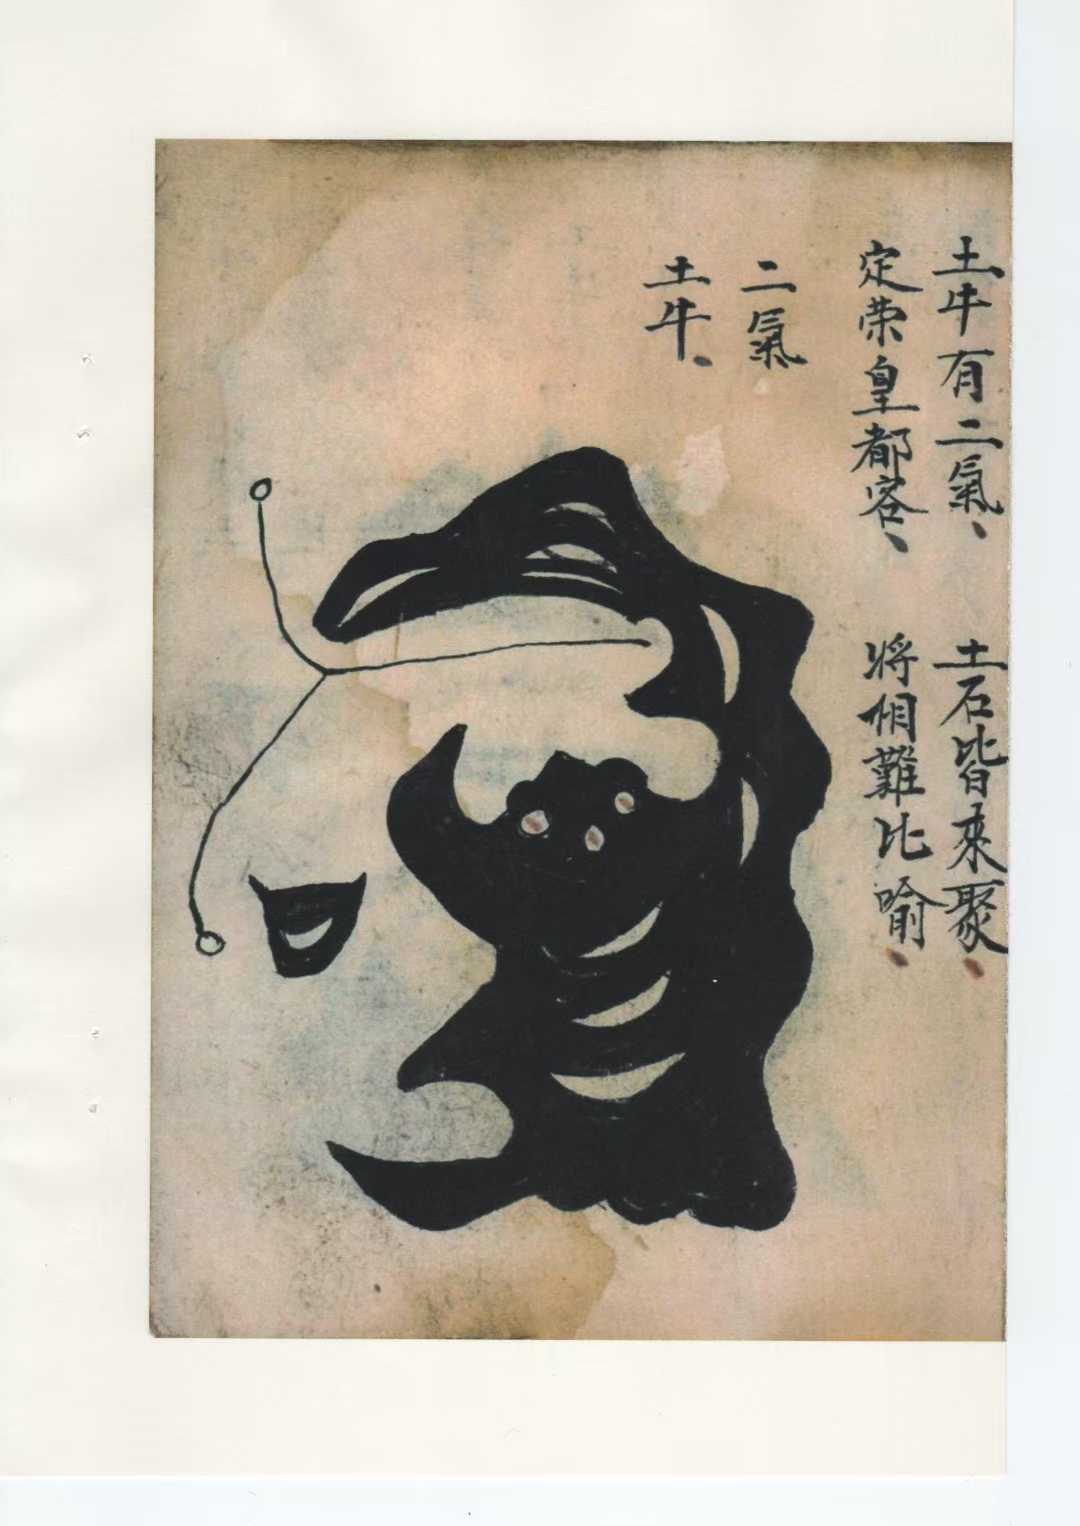 土牛有二氣、 土石皆來聚、
定荣皇都容、 將相難比喻、
二氣
土牛、